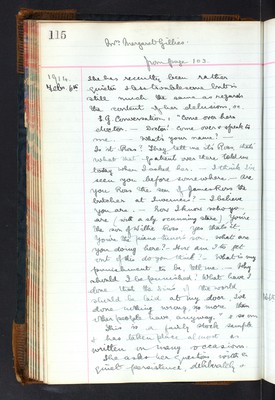 115
Mrs. Margaret Gillies.
from page 103.
1914.
Febr. 6th
She has recently been rather
quieter & less troublesome but is
still much the same as regards
the content of her delusions, as
E.g. Conversation, : "Come over here
doctor. — Doctor! Come over & speak to
me. — What's your name? —
Is it Ross? They tell me it's Ross, that's
what that patient over there told me
today when I asked her. — I think I've
seen you before somewhere — are
you Ross the son of James Ross the
butcher at Inverness? — I believe
you are. — Now I know who you
are (with a sly cunning stare) You're
the son of Willie Ross. Yes that's it.
You're the piano tuner's son. What are
you doing here? How am I to get
out of this do you think? — What is my
punishment to be, tell me. — Why
should I be punished? What have I
done that the sins of the world
should be laid at my door, I've
done nothing wrong, no more than
other people have anyway." & so on
This is a fairly stock sample
& has taken place almost as
written on many occasions.
She asks her questions with a
quiet persistence, deliberately &